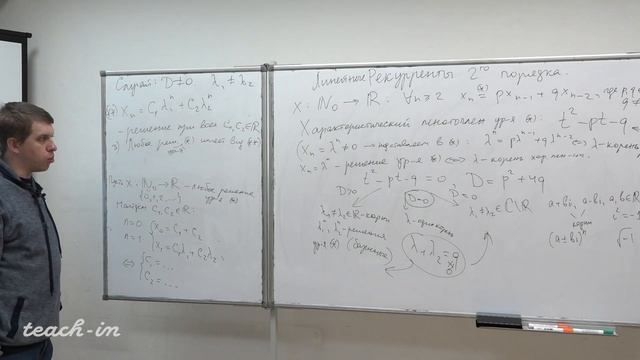 Случай: D≠0 λ₁ ≠ λ₂
(**) Xₙ = C₁λ₁ⁿ + C₂λ₂ⁿ
– решение при всех C₁, C₂ ∈ ℝ
Любое реш. (*) имеет вид (**)
Пусть X: ℕ₀ → ℝ – любое решение
{0,1,2,...} ур-я (*)
Найдём C₁, C₂ ∈ ℝ:
n=0 { X₀ = C₁ + C₂
n=1 { X₁ = C₁λ₁ + C₂λ₂
⇔ { C₁ = ...
{ C₂ = ...
Линейные Рекурренты 2го порядка.
X: ℕ₀ → ℝ: ∀n≥2 Xₙ (*)= pXₙ₋₁ + qXₙ₋₂, где p, q
Характеристический многочлен ур-я (*): t² - pt - q
(Xₙ = λⁿ ≠ 0 → подставляем в (*): λⁿ = pλⁿ⁻¹ + qλⁿ⁻² ⇔ λ – корень
Xₙ = λⁿ – решение ур-я (*) ⇔ λ – корень хар. мн-на.
t² - pt - q = 0 D = p² + 4q
D>0 D=0 D<0
λ₁ ≠ λ₂ ∈ ℝ – корни
λ₁ⁿ, λ₂ⁿ – решения
ур-я (*)
λ – один корень
λ₁ ≠ λ₂ ∈ ℂ\ℝ
a+bi, a-bi, a, b ∈ ℝ
корни
i² = -1
(a±bi)ⁿ
√-1
teach-in